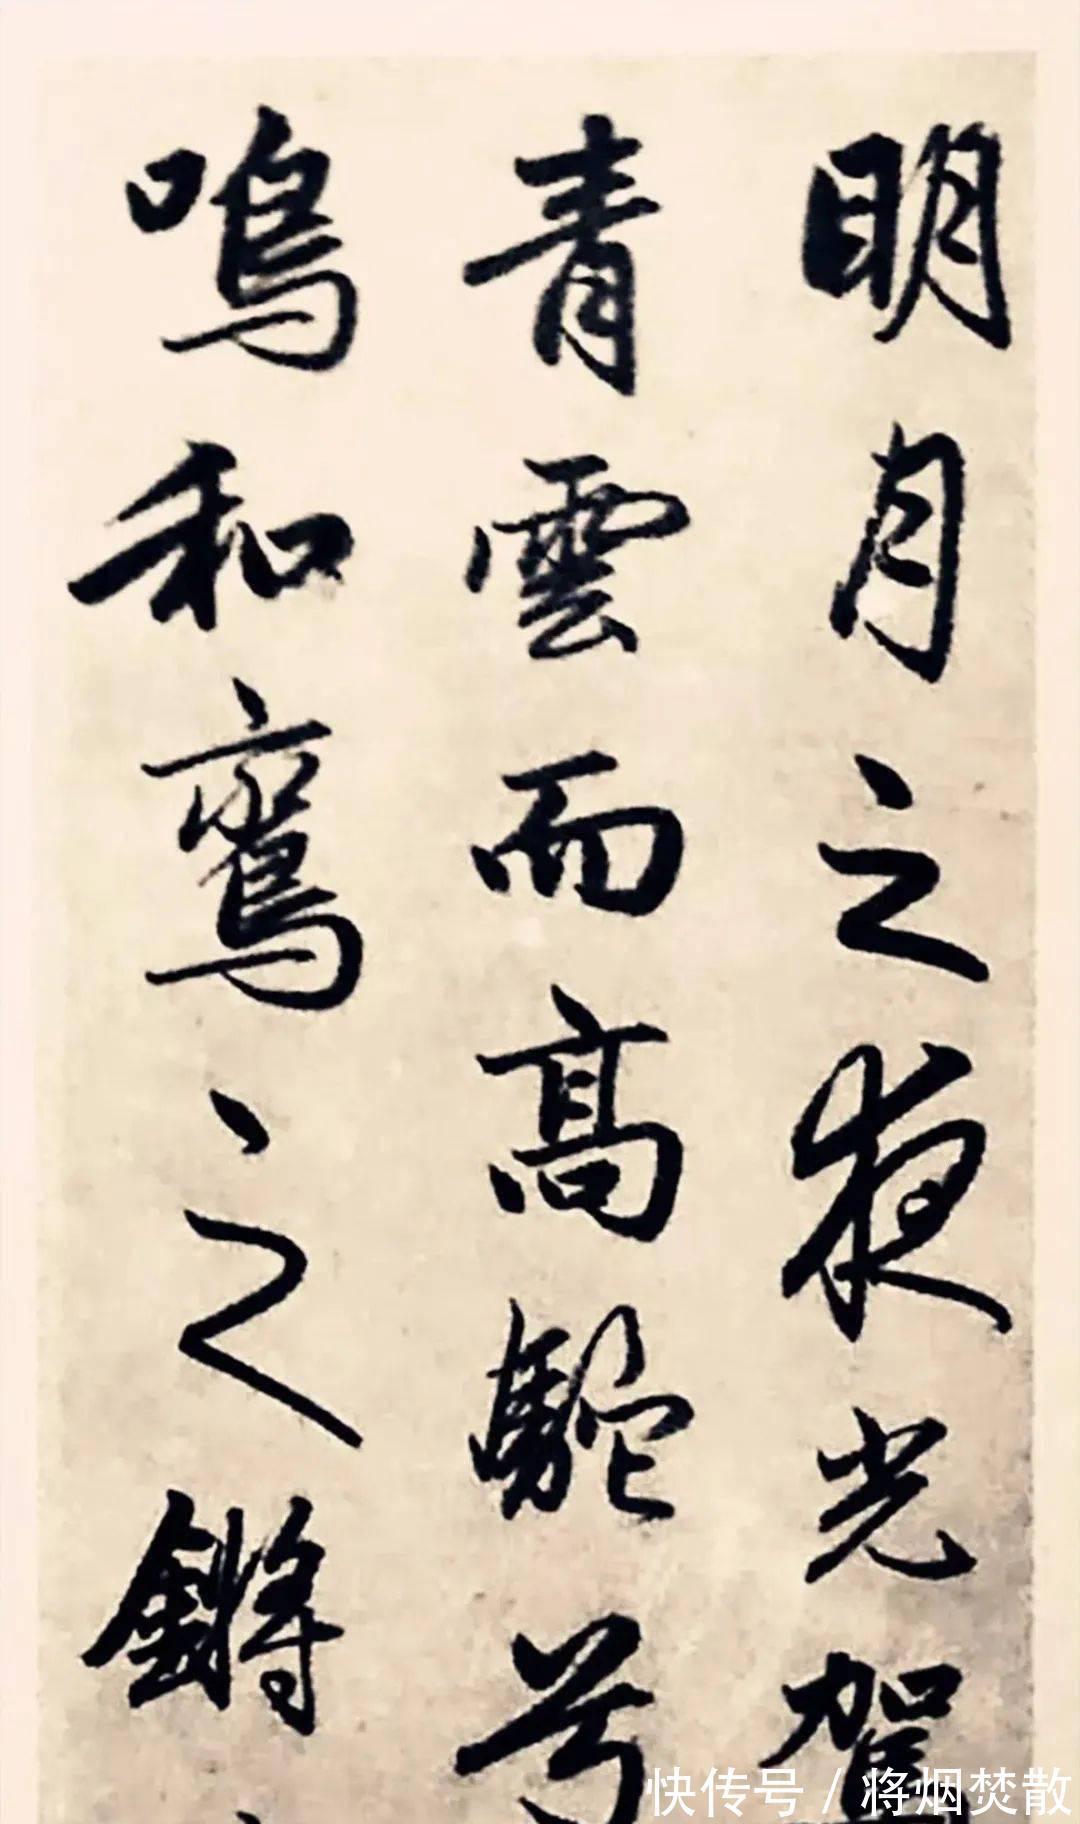 明月之夜光駕
青雲而高馳兮
鳴和鸞之鏘
快传号 / 将烟焚散